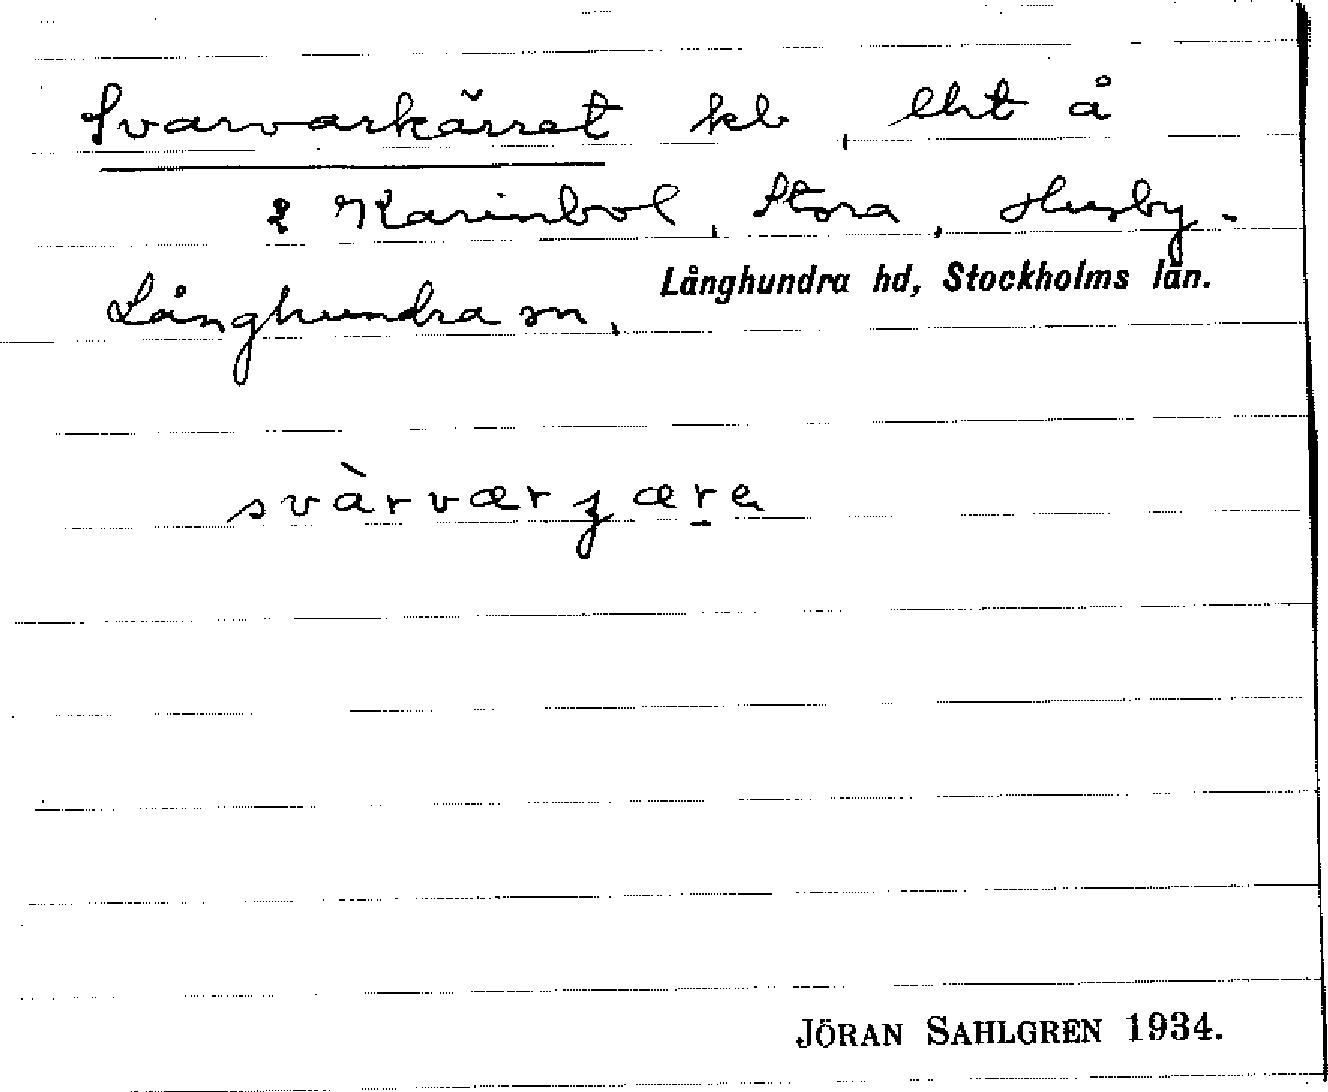 Svarvarkärret kb, lht å
2 Karinbol, Stora, Husby-
Långhundra sn,
Långhundra hd, Stockholms län.
svàrværʒære
JÖRAN SAHLGREN 1934.